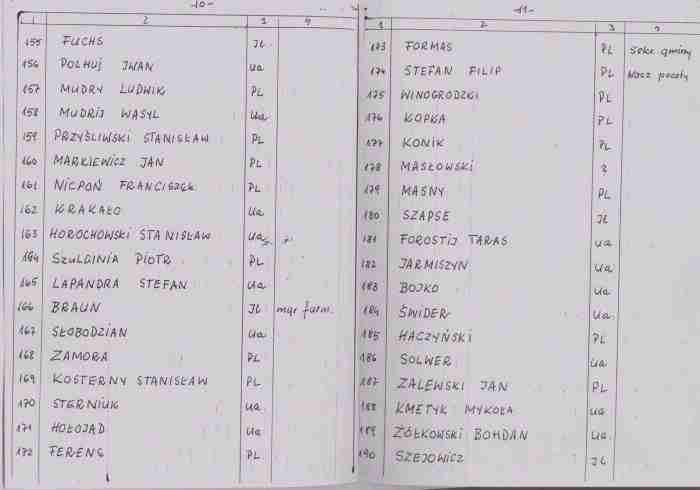 -10-
1 2 3 4
155 FUCHS JŁ.
156 POLHUJ IWAN Ua
157 MUDRY LUDWIK PL
158 MUDRIJ WASYL Ua
159 PRZYŚLIWSKI STANISŁAW PL
160 MARKIEWICZ JAN PL
161 NICPOŃ FRANCISZEK PL
162 KRAKAŁO Ua
163 HOROCHOWSKI STANISŁAW Ua
164 SZULDINIA PIOTR PL
165 LAPANDRA STEFAN Ua
166 BRAUN JŁ mgr farm.
167 SŁOBODZIAN Ua
168 ZAMORA PL
169 KOSTERNY STANISŁAW PL
170 STERNIUK Ua
171 HOŁOJAD Ua
172 FERENS PL
-11-
1 2 3
173 FORMAS PL Sekr gminy
174 STEFAN FILIP PL Nacz poczty
175 WINOGRODZKI PL
176 KOPKA PL
177 KONIK PL
178 MASŁOWSKI ?
179 MASNY PL
180 SZAPSE JŁ
181 FOROSTIJ TARAS Ua
182 JARMISZYN Ua
183 BOJKO Ua
184 ŚWIDER Ua
185 HACZYŃSKI PL
186 SOLWER Ua
187 ZALEWSKI JAN PL
188 KMETYK MYKOŁA Ua
189 ŻÓŁKOWSKI BOHDAN Ua
190 SZEJOWICZ JŁ